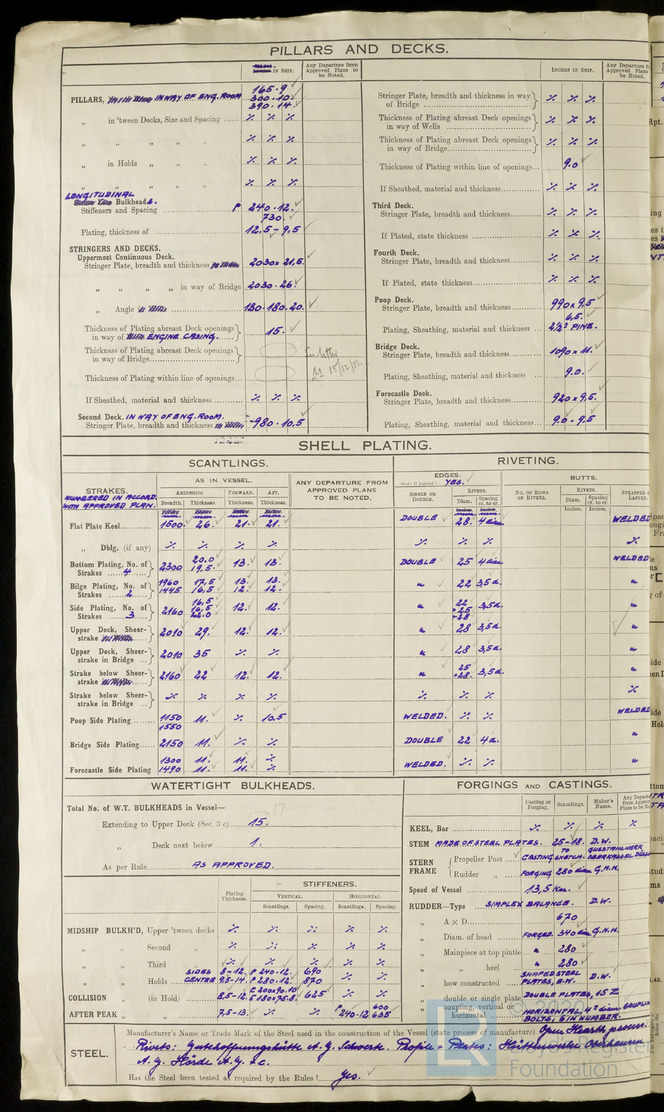 PILLARS AND DECKS.
IN SHIP.
Any Departure from Approved Plans to be Noted.
PILLARS, IN WAY OF ENG. ROOM 165·9 300·10· 390·14·
„ in 'tween Decks, Size and Spacing ⁒ ⁒ ⁒
„ „ „ „ ⁒ ⁒ ⁒
„ in Holds „ „ ⁒ ⁒ ⁒
„ „ „ „ ⁒ ⁒ ⁒
LONGITUDINAL Bulkheads.
Stiffeners and Spacing P 240·12· 730·
Plating, thickness of 12.5 - 9,5
STRINGERS AND DECKS.
Uppermost Continuous Deck.
Stringer Plate, breadth and thickness 2030 x 21,5
„ „ „ „ in way of Bridge 2030·26·
„ Angle 180·180·20·
Thickness of Plating abreast Deck openings in way of ENGINE CASING. 15.
Thickness of Plating abreast Deck openings in way of Bridge
Thickness of Plating within line of openings
If Sheathed, material and thickness ⁒ ⁒ ⁒
Second Deck. IN WAY OF ENG. ROOM.
Stringer Plate, breadth and thickness 980·10,5
INCHES IN SHIP.
Stringer Plate, breadth and thickness in way of Bridge ⁒ ⁒ ⁒
Thickness of Plating abreast Deck openings in way of Wells ⁒ ⁒ ⁒
Thickness of Plating abreast Deck openings in way of Bridge ⁒ ⁒ ⁒
Thickness of Plating within line of openings 9.0
If Sheathed, material and thickness ⁒ ⁒ ⁒
Third Deck.
Stringer Plate, breadth and thickness ⁒ ⁒ ⁒
If Plated, state thickness ⁒ ⁒ ⁒
Fourth Deck.
Stringer Plate, breadth and thickness ⁒ ⁒ ⁒
If Plated, state thickness ⁒ ⁒ ⁒
Poop Deck.
Stringer Plate, breadth and thickness 990 x 9,5
Plating, Sheathing, material and thickness 6,5. 2½" PINE.
Bridge Deck.
Stringer Plate, breadth and thickness 1090 x 11.
Plating, Sheathing, material and thickness 9.0.
Forecastle Deck.
Stringer Plate, breadth and thickness 920 x 9,5.
Plating, Sheathing, material and thickness 9.0 - 9,5
SHELL PLATING.
SCANTLINGS.
RIVETING.
STRAKES.
NUMBERED IN ACCORD. WITH APPROVED PLAN.
AS IN VESSEL.
AMIDSHIPS. FORWARD. AFT.
Breadth. Thickness. Thickness. Thickness.
ANY DEPARTURE FROM APPROVED PLANS TO BE NOTED.
EDGES. YES.
SINGLE OR DOUBLE.
RIVETS.
Diam. Spacing cr. to cr.
BUTTS.
NO. OF ROWS OF RIVETS.
RIVETS.
Diam. Spacing cr. to cr.
Inches. Inches.
Flat Plate Keel 1500· 26· 21· 21· DOUBLE 28· 4 diam WELDED
„ Dblg. (if any) ⁒ ⁒ ⁒ ⁒ ⁒ ⁒ ⁒ ⁒
Bottom Plating, No. of Strakes 4 2300 20.0 19,5· 13· 13· DOUBLE 25 4 diam WELDED
Bilge Plating, No. of Strakes 2 1960 1445 17,5 16,5 13· 12· 13· 12· „ 22 3,5d. „
Side Plating, No. of Strakes 3 2160 12. 12. „ 3,5d. „
Upper Deck, Sheerstrake 2010 29. 12. 12. „ 28 3,5d. „
Upper Deck, Sheerstrake in Bridge 2010 35 ⁒ ⁒ „ 28 3,5d. „
Strake below Sheerstrake 2160 22 12. 12. „ 25 28. 3,5d. „
Strake below Sheerstrake in Bridge ⁒ ⁒ ⁒ ⁒ ⁒ ⁒ ⁒ ⁒
Poop Side Plating 1150 1550 11. ⁒ 10.5 WELDED. ⁒ ⁒ WELDED
Bridge Side Plating 2150 11. ⁒ ⁒ DOUBLE 22 4d. „
Forecastle Side Plating 1300 1490 11. 11. 11. 11. ⁒ ⁒ WELDED. ⁒ ⁒ „
WATERTIGHT BULKHEADS.
Total No. of W.T. BULKHEADS in Vessel—
Extending to Upper Deck (Sec. 3 c) 15. 17
„ Deck next below 1.
As per Rule AS APPROVED.
Plating Thickness.
STIFFENERS.
VERTICAL. HORIZONTAL.
Scantlings. Spacing. Scantlings. Spacing.
MIDSHIP BULKH'D, Upper 'tween decks ⁒ ⁒ ⁒ ⁒ ⁒
„ „ Second „ ⁒ ⁒ ⁒ ⁒ ⁒
„ „ Third „ ⁒ ⁒ ⁒ ⁒ ⁒
„ „ Holds SIDES 8-12. P 240·12. 690 ⁒ ⁒
CENTRE 9,5-14. P 280·12. 870
COLLISION „ (in Hold) 8,5-12. 625 ⁒ ⁒
AFTER PEAK „ „ 7,5-13. ⁒ ⁒ P 240·12 600 635
FORGINGS AND CASTINGS.
Casting or Forging. Scantlings. Maker's Name.
KEEL, Bar ⁒ ⁒ ⁒ ⁒
STEM MADE OF STEEL PLATES. 25-18. D.W.
STERN FRAME
Propeller Post CASTING TO SKETCH. GUSSTAHLWERK OBERKASSEL
Rudder „ FORGING 280 diam G.H.H.
Speed of Vessel 13,5 Kn.
RUDDER—Type SIMPLEX BALANCE. D.W.
„ A × D 670
„ Diam. of head FORGED. 340 diam G.H.H.
„ Mainpiece at top pintle „ 280
„ „ heel „ 280
„ how constructed SHAPED STEEL PLATES, E.W. D.W.
„ double or single plate DOUBLE PLATES, 15
„ coupling, vertical or horizontal HORIZONTAL, COUPLING BOLTS, 6 IN NUMBER.
STEEL.
Manufacturer's Name or Trade Mark of the Steel used in the construction of the Vessel (state process of manufacture) Open Hearth process.
Rivets: Gutehoffnungshütte A.G. Schwerte. Profile + Plates: Hüttenwerke Oberhausen
A.G. Hörde A.G. &c.
Has the Steel been tested as required by the Rules? Yes.
© 2020
Lloyd's Register
Foundation